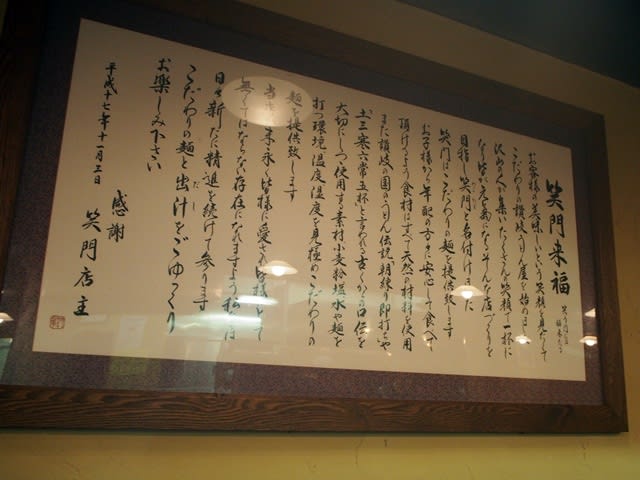 笑門来福
笑う門には
福来たる
お客様の美味しいという笑顔を見たくて
こだわりの讃岐うどん屋を始めました
沢山の人が集いたくさんな笑顔で一杯に
なり皆が元気になるそんな店づくりを
目指し笑門と名付けました
笑門はこだわりの麺を提供致します
お子様から年配の方々に安心して食べて
頂けるよう食材はすべて天然の材料を使用
また讃岐の国のうどん伝説「朝練り即打ち」や
「土三寒六常五杯」と言われる古くからの口伝を
大切にしつつ使用する素材小麦粉塩水や麺を
打つ環境温度湿度を見極めこだわりの
麺を提供致します
末永く皆様に愛され皆様にとって
無くてはならない存在になれますよう私ども
日々新たに精進を続けて参ります
こだわりの麺と出汁をごゆっくり
だし
お楽しみ下さい
平成十七年十一月三日
感謝
笑門店主